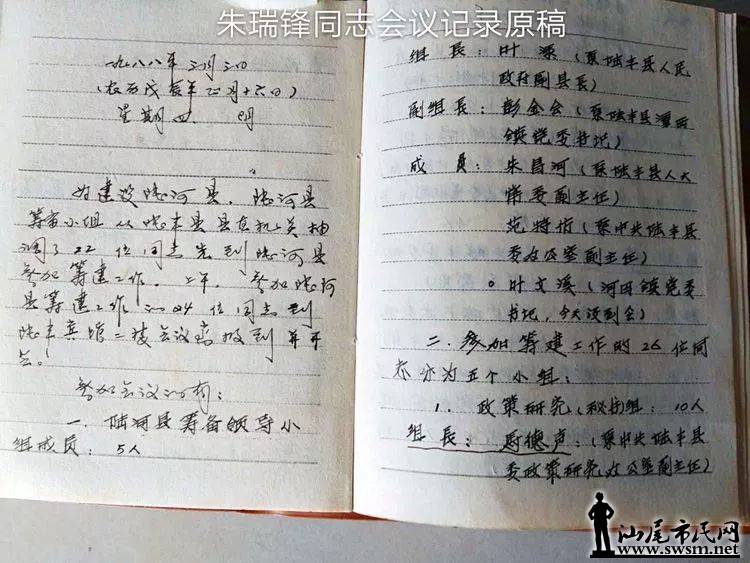 朱瑞锋同志会议记录原稿
一九八八年三月三日
(农历戊辰年正月十六日)
星期四 晴
为建设陆河县,陆河县
筹备小组从陆丰县县直机关抽
调了22位同志先到陆河县
参加筹建工作。上午,参加陆河
县筹建工作的24位同志到
陆丰宾馆二楼会议室报到并开
会!
参加会议的有:
一、陆河县筹备领导小
组成员:5人
组长:叶溧(原陆丰县人民
政府副县长)
副组长:彭金会(原陆丰县潭西
镇党委书记)
成员:朱昌河(原陆丰县人大
常委副主任)
范特
(原中共陆丰县
委办公室副主任)
叶文溪(河田镇党委
书记,今天没到会)
二、参加筹建工作的26位同
志分为五个小组:
1. 政策研究(秘书)组:10人
组长:
德声:(原中共陆丰县
委政策研究办公室副主任)
汕尾市民网
www.swsm.net